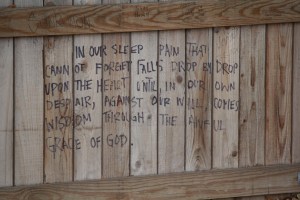 IN OUR SLEEP PAIN THAT
CANNOT FORGET FALLS DROP BY DROP
UPON THE HEART UNTIL, IN OUR OWN
DESPAIR, AGAINST OUR WILL, COMES
WISDOM THROUGH THE AWFUL
GRACE OF GOD.